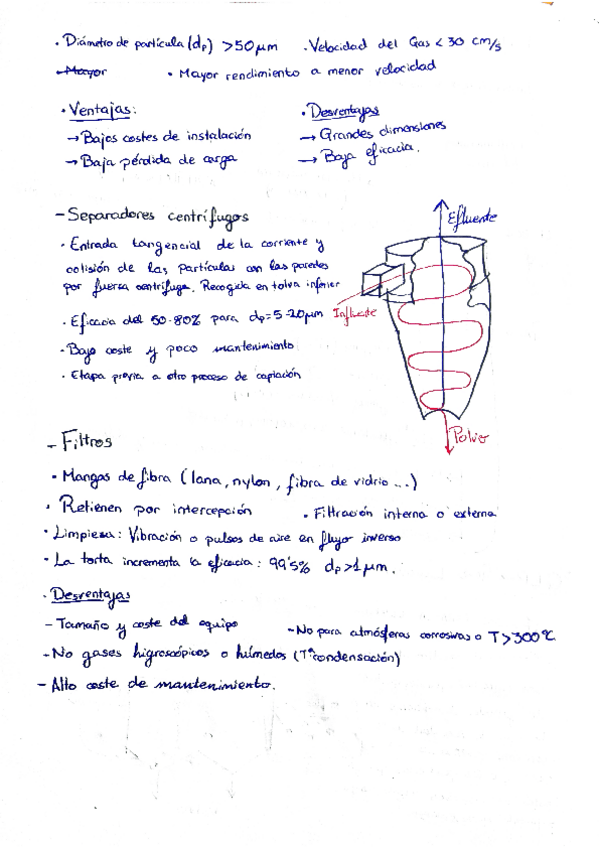 · Diámetro de partícula (dp) >50 µm · Velocidad del Gas < 30 cm/s
· Mayor · Mayor rendimiento a menor velocidad
· Ventajas: · Desventajas
→ Bajos costes de instalación → Grandes dimensiones
→ Baja pérdida de carga → Baja eficacia.
- Separadores centrífugos
Efluente
· Entrada tangencial de la corriente y
colisión de las partículas con las paredes
por fuerza centrífuga. Recogida en tolva inferior
Influente
· Eficacia del 50-80% para dp=5-20µm
· Bajo coste y poco mantenimiento
· Etapa previa a otro proceso de captación
Polvo
- Filtros
· Mangas de fibra (lana, nylon, fibra de vidrio...)
· Retienen por intercepción · Filtración interna o externa
· Limpiesa: Vibración o pulsos de aire en flujo inverso
· La torta incrementa la eficacia: 99'5% dp>1µm.
· Desventajas
- Tamaño y coste del equipo - No para atmósferas corrosivas o T>300ºC
- No gases higroscópicos o húmedos (Tª condensación)
- Alto coste de mantenimiento.